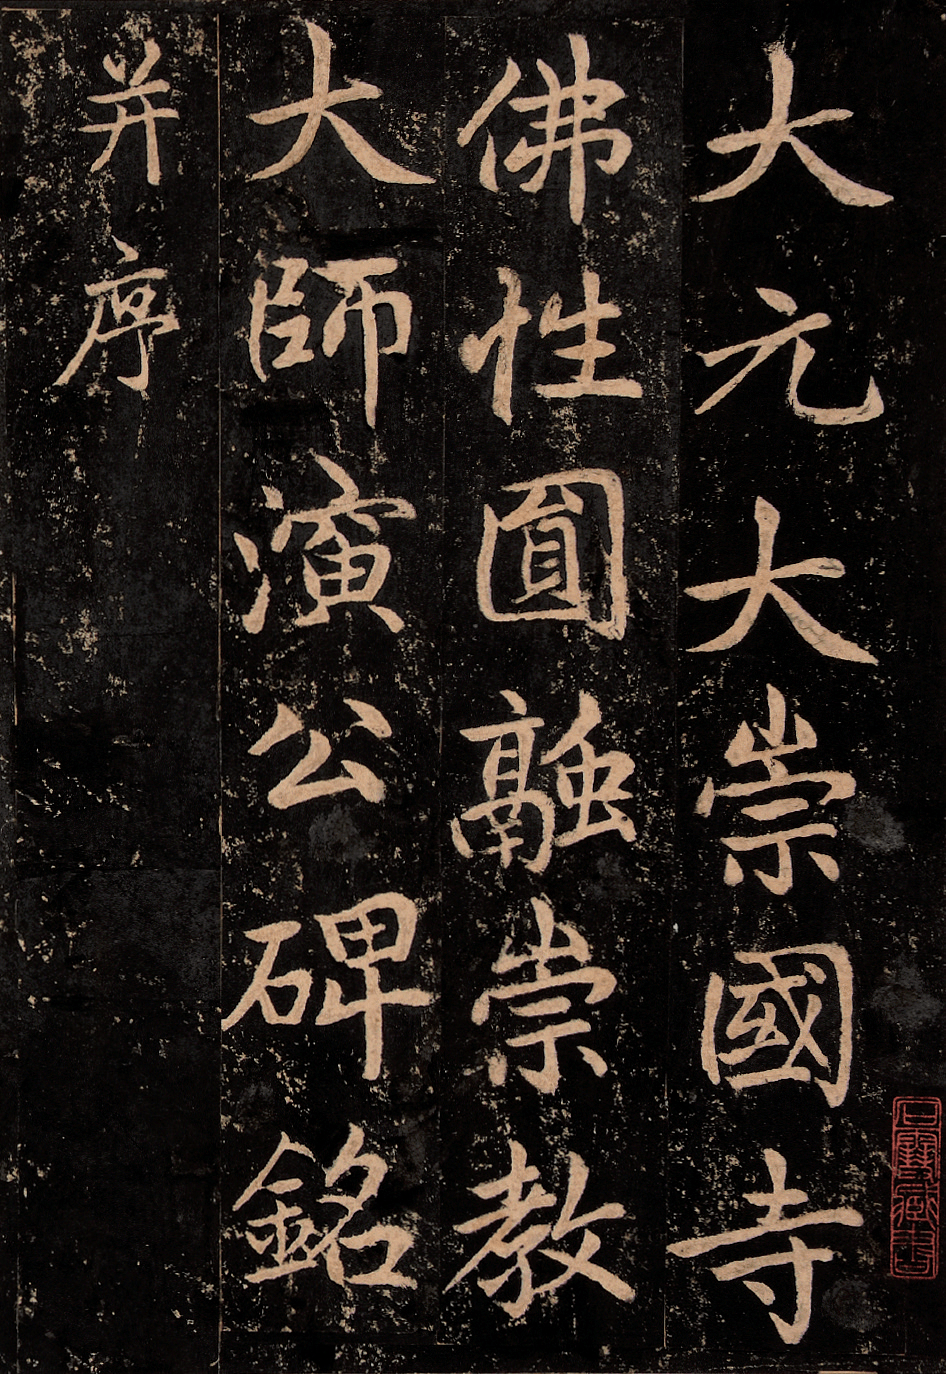 大元大崇國寺
佛性圓融崇教
大師演公碑銘
并序